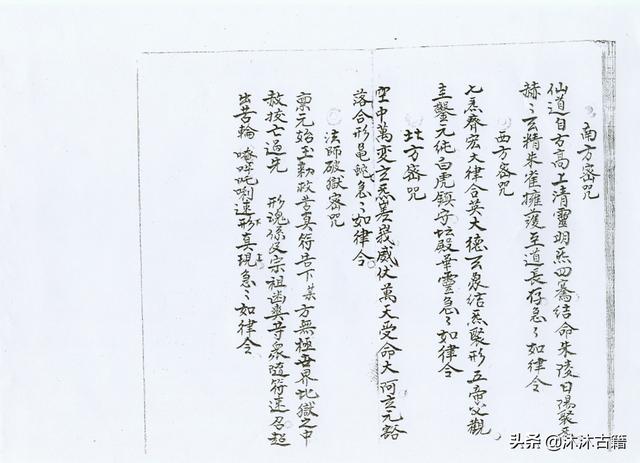 南方密咒
仙道自方高上清靈明炁四騫結命朱陵日陽聚
赫〻玄精朱雀擁護至道長存急〻如律令
西方密咒
七炁齊宏大律令英大德玄泉結炁聚形五帝父觀
主鑿元純白虎鎮守坛殿華靈急〻如律令
北方密咒
空中萬変玄炁羞峩威伏萬天受命大阿玄元谿
落合形黽蛇急〻如律令
法師破獄密咒
禀元始玉勅救苦真符告下某方無極世界地獄之中
救拔亡過先 形魂係父宗祖幽爽等衆隨符速召超
出苦輪 唵吽吒唎速形真現急〻如律令
头条 @沐沐古籍